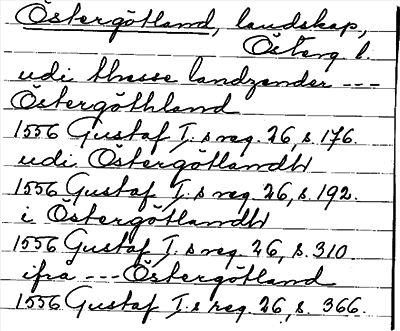 Östergötland, landskap,
Österg. l.
udi thesse landzender ---
Östergöthland
1556 Gustaf I.s reg. 26, s. 176.
udi Östergötlandh
1556 Gustaf I.s reg. 26, s. 192.
i Östergötlandh
1556 Gustaf I.s reg. 26, s. 310
ifrå --- Östergötland
1556 Gustaf I.s reg. 26, s. 366.